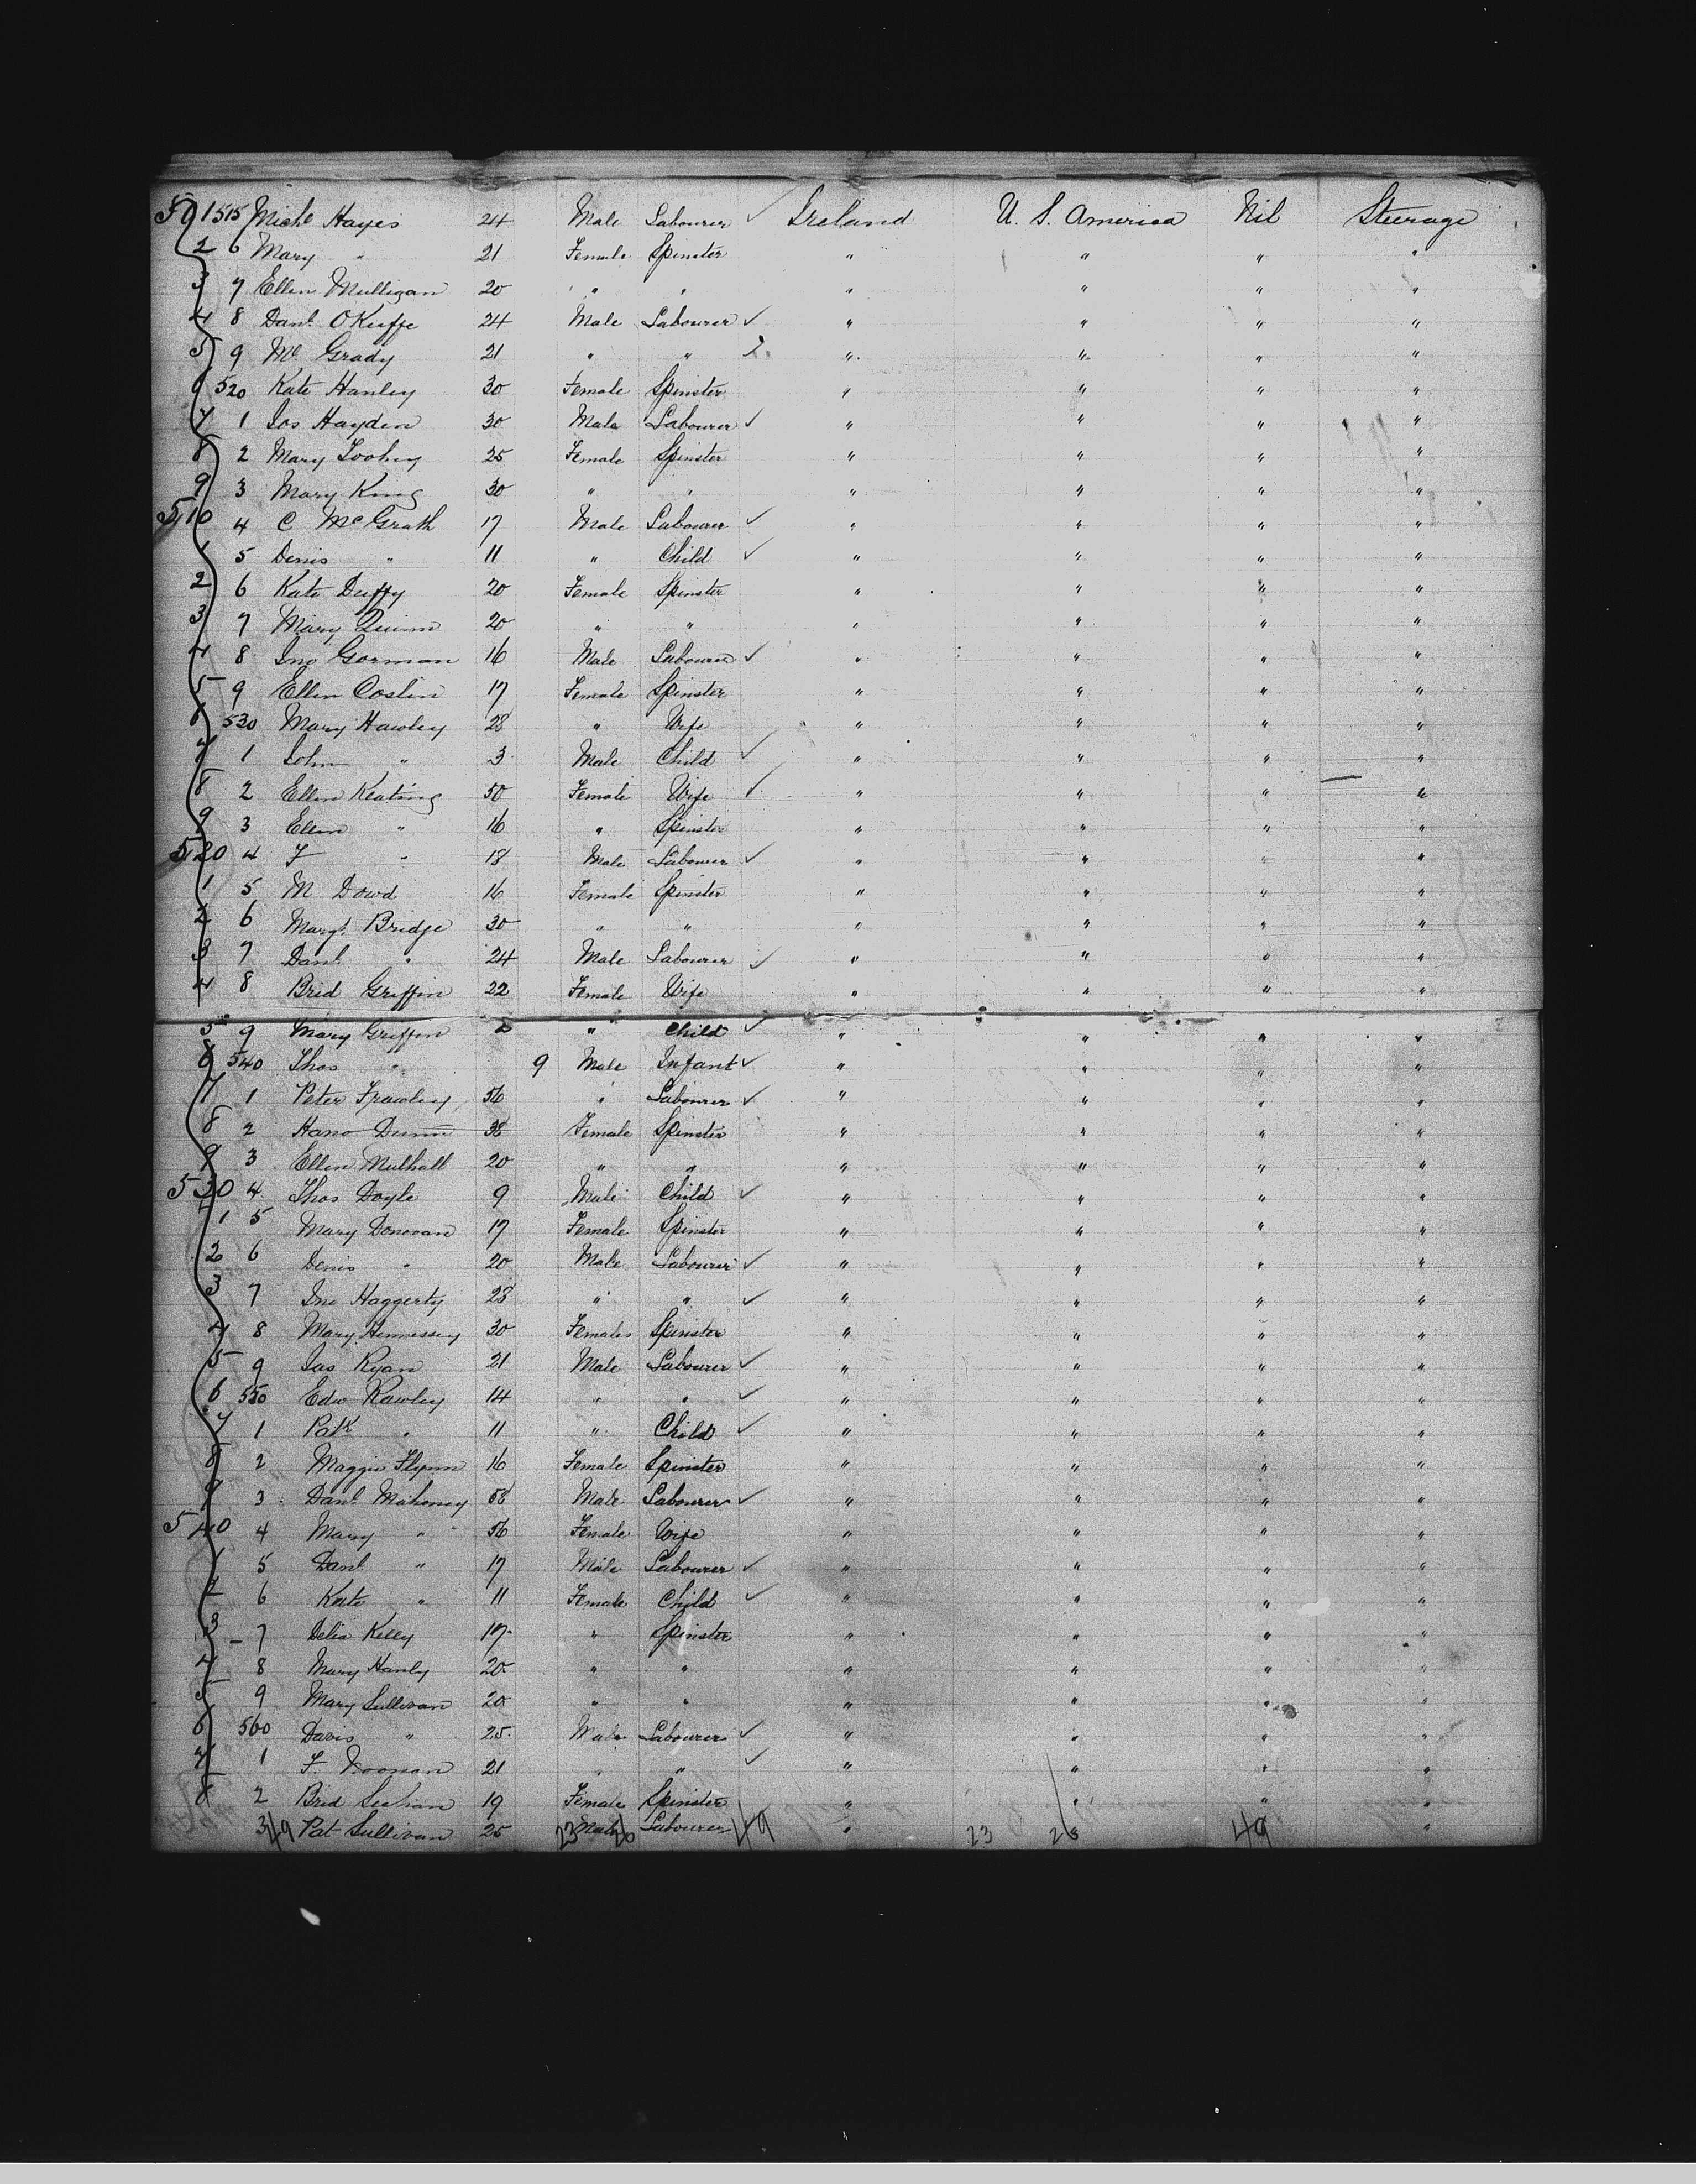 50 1 515 Michl Hayes 24 Male Labourer ✓ Ireland U. S. America Nil Steerage
2 6 Mary " 21 Female Spinster " " " "
3 7 Ellen Mulligan 20 " " " " " "
4 8 Danl. OKeiffe 24 Male Labourer ✓ " " " "
5 9 Grady 21 " " " " " "
6 520 Kate Hanley 30 Female Spinster " " " "
7 1 Jos Hayden 30 Male Labourer ✓ " " " "
8 2 Mary Toohey 25 Female Spinster " " " "
9 3 Mary King 30 " " " " " "
510 4 C McGrath 17 Male Labourer ✓ " " " "
1 5 Denis " 11 " Child ✓ " " " "
2 6 Kate Duffy 20 Female Spinster " " " "
3 7 Mary Quinn 20 " " " " " "
4 8 Jno Gorman 16 Male Labourer ✓ " " " "
5 9 Ellen Coslin 17 Female Spinster " " " "
6 530 Mary Hawley 28 " Wife " " " "
7 1 John " 3 Male Child ✓ " " " "
8 2 Ellen Keating 50 Female Wife ✓ " " " "
9 3 Ellen " 16 " Spinster " " " "
520 4 T " 18 Male Labourer ✓ " " " "
1 5 M Dowd 16 Female Spinster " " " "
2 6 Margt. Bridge 30 " " " " " "
3 7 Danl. " 24 Male Labourer ✓ " " " "
4 8 Brid Griffin 22 Female Wife " " " "
5 9 Mary Griffin 2 " Child ✓ " " " "
6 540 Thos " 9 Male Infant ✓ " " " "
7 1 Peter Frawley 56 " Labourer ✓ " " " "
8 2 Hano Dunn 38 Female Spinster " " " "
9 3 Ellen Mulhall 20 " " " " " "
530 4 Thos Doyle 9 Male Child ✓ " " " "
1 5 Mary Donovan 17 Female Spinster " " " "
2 6 Denis " 20 Male Labourer ✓ " " " "
3 7 Jno Haggerty 23 " " ✓ " " " "
4 8 Mary Hennessey 30 Female Spinster " " " "
5 9 Jas Ryan 21 Male Labourer ✓ " " " "
6 550 Edw Rawley 14 " " ✓ " " " "
7 1 Patk " 11 " Child ✓ " " " "
8 2 Maggie Flynn 16 Female Spinster " " " "
9 3 Danl. Mahoney 58 Male Labourer ✓ " " " "
540 4 Mary " 56 Female Wife " " " "
1 5 Danl. " 17 Male Labourer ✓ " " " "
2 6 Kate " 11 Female Child ✓ " " " "
3 7 Delia Kelly 17 " Spinster " " " "
4 8 Mary Hanly 20 " " " " " "
5 9 Mary Sullivan 20 " " " " " "
6 560 Davis " 25 Male Labourer ✓ " " " "
7 1 F. Noonan 21 " " ✓ " " " "
8 2 Brid Leehan 19 Female Spinster " " " "
3 49 Pat Sullivan 25 23 Male 26 Labourer 49 " 23 26 49 "